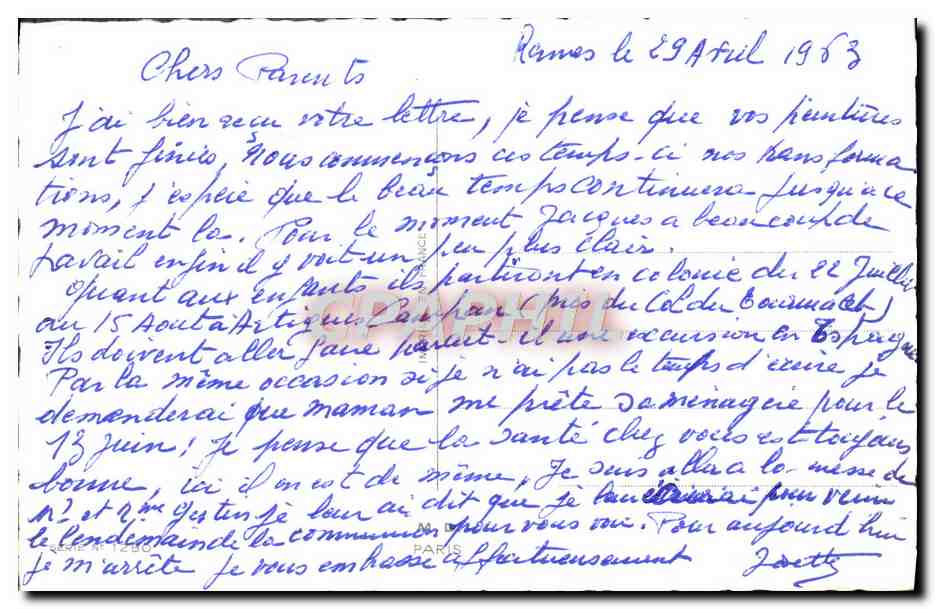 le 29 Avril 1963
Chers Parents
J'ai bien reçu votre lettre, je pense que vos peintures
sont finies, Nous commençons ces temps-ci nos transforma
tions, j'espère que le beau temps continuera jusqu'à ce
moment la. Pour le moment Jacques a beaucoup de
travail enfin il y voit un peu plus clair.
Quant aux enfants ils partiront en colonie du 22 Juillet
au 15 Aout à Artigues Campan (près du Col du Tourmalet)
Ils doivent aller faire parait-il une excursion en Espagne
Par la même occasion si je n'ai pas le temps d'écrire je
demanderai que maman me prête sa ménagère pour le
13 juin! je pense que la santé chez vous est toujours
bonne, ici il en est de même, Je suis allée a la messe de
et je leur ai dit que je pour venir
le lendemain de la communion pour vous voir. Pour aujourd'hui
je m'arrête je vous embrasse affectueusement
SERIE N° 1280
M. D.
PARIS
CPAPHIL